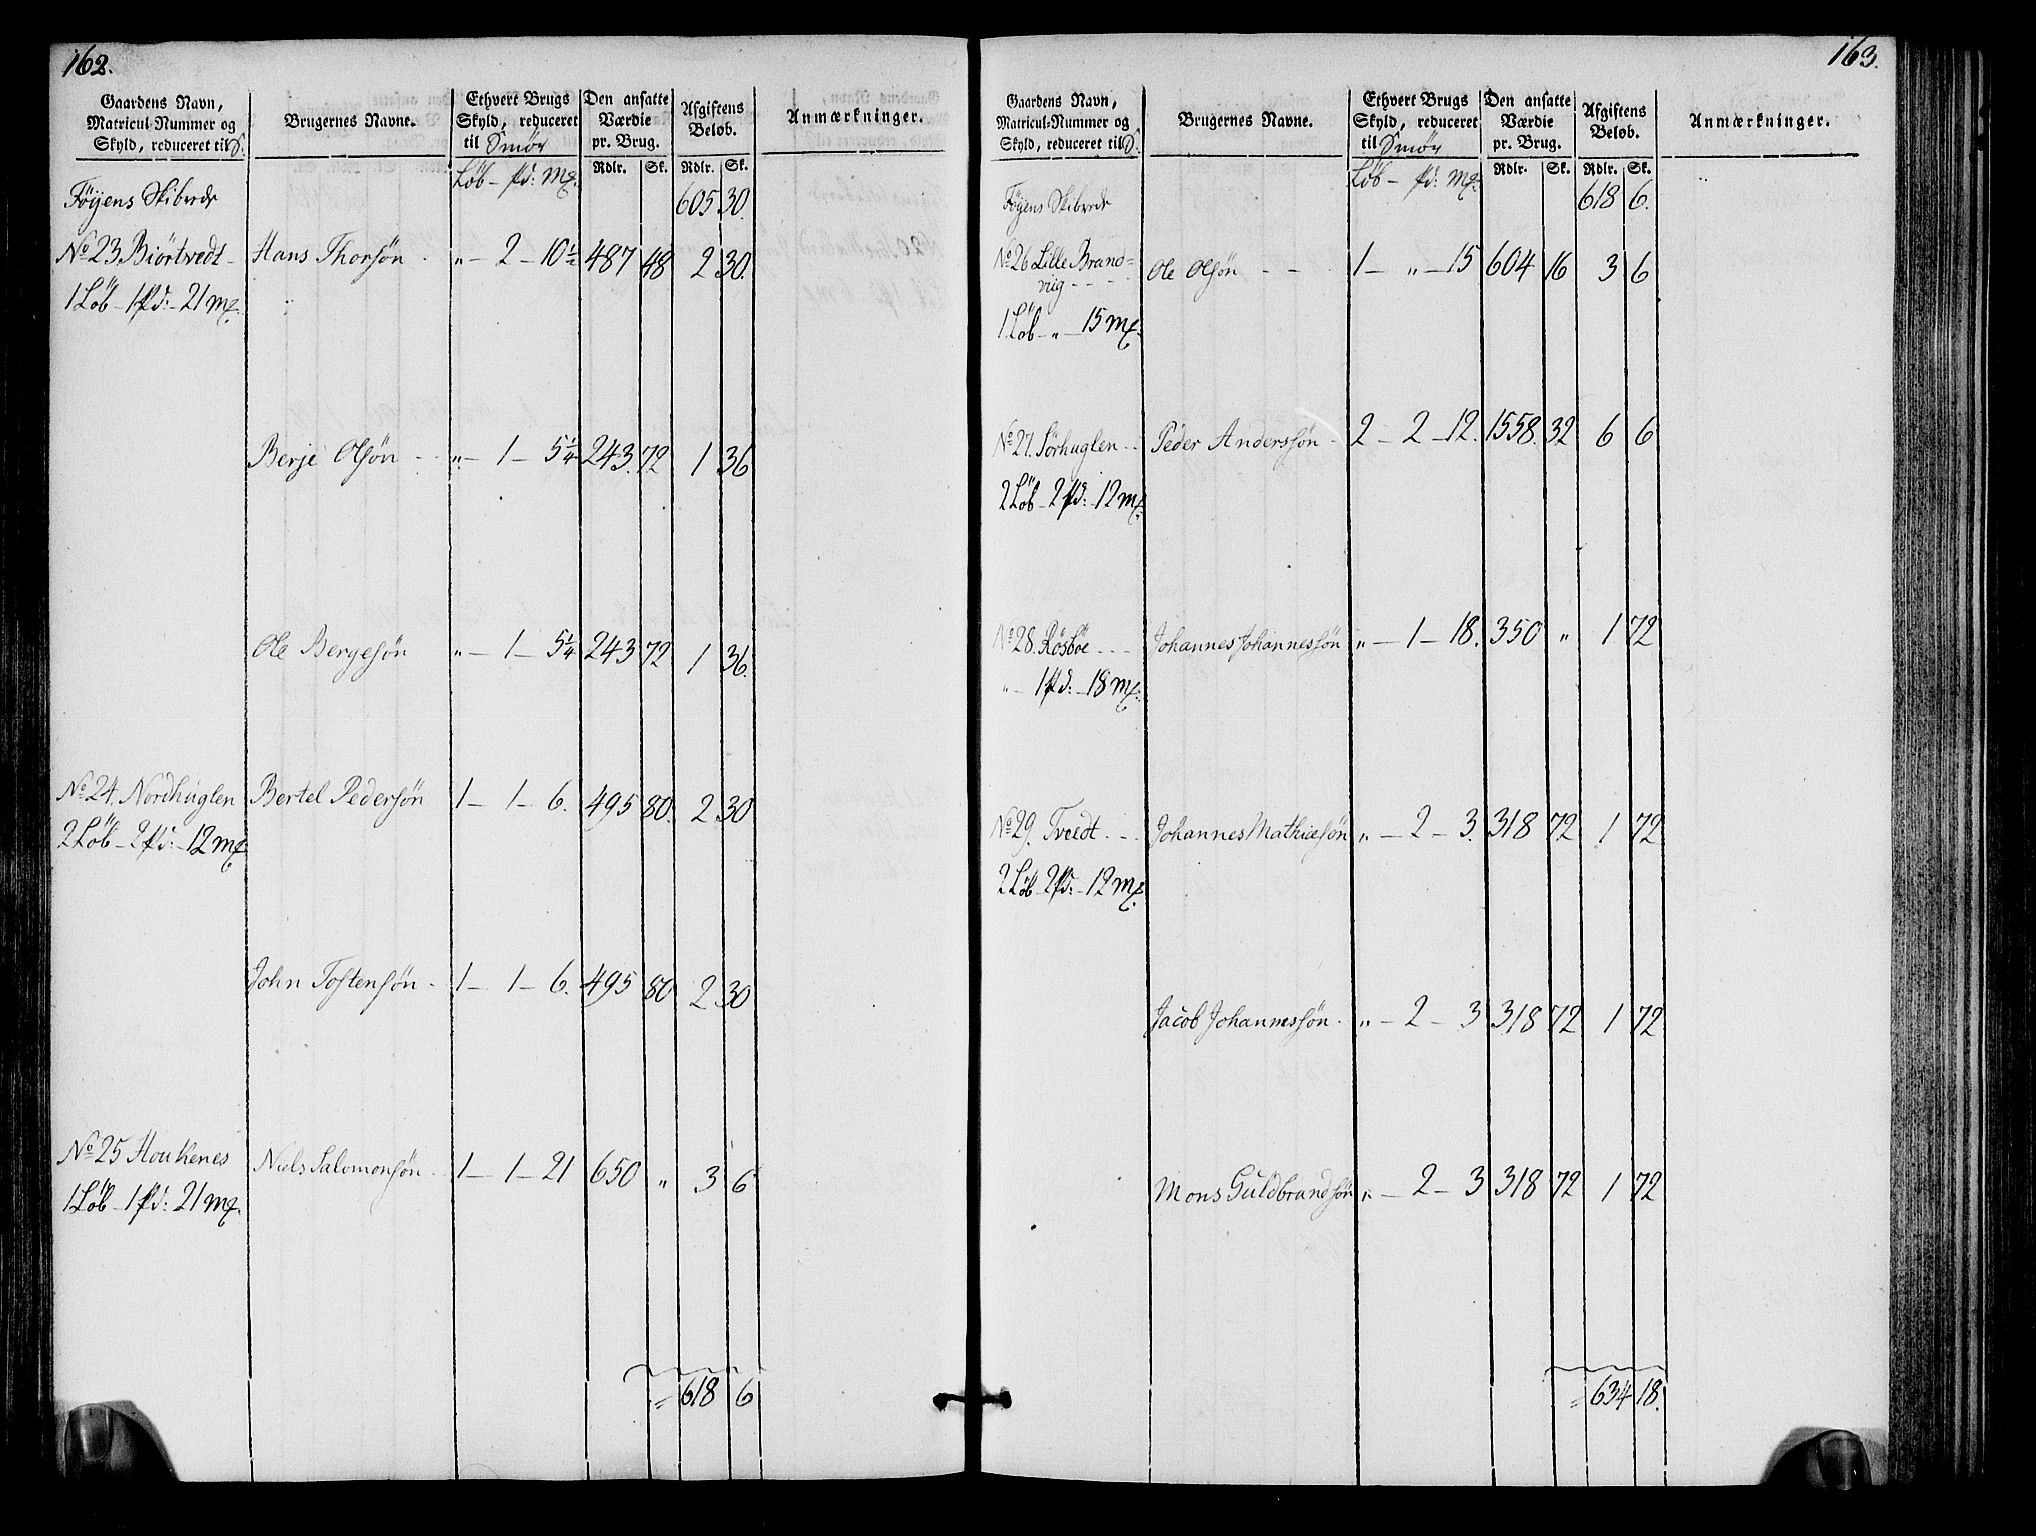 162.
Gaardens Navn, Matricul-Nummer og Skyld, reduceret til S. | Brugernes Navne. | Ethvert Brugs Skyld, reduceret til Smör | Den ansatte Værdie pr. Brug. | Afgiftens Beløb. | Anmærkninger.
Löb – Pd: Mk. | Rdlr. | Sk. | Rdlr. | Sk.
Föyens Skibrede 605 30.
No 23 Biörtvedt – Hans Thorsön „ – 2 – 10½ 487 48 2 30.
1 Löb – 1 Pd: – 21 Mk.
Berje Olsön „ – 1 – 5¼ 243. 72 1 36
Ole Bergesön „ – 1 – 5¼ 243 72 1 36.
No 24. Nordhuglen Bertel Pedersön 1 – 1 – 6. 495 80. 2 30
2 Löb – 2 Pd: – 12 Mk
John Tostensön – 1 – 1 – 6. 495 80 2 30
No 25 Houkenes Niels Salomonsön 1 – 1 – 21 650 „ 3 6
1 Löb – 1 Pd: 21 Mk.
618 6
163.
Gaardens Navn, Matricul-Nummer og Skyld, reduceret til S. | Brugernes Navne. | Ethvert Brugs Skyld, reduceret til Smör | Den ansatte Værdie pr. Brug. | Afgiftens Beløb. | Anmærkninger.
Löb – Pd: Mk. | Rdlr. | Sk. | Rdlr. | Sk.
Föyens Skibrede 618 6.
No 26 Lille Brand= Ole Olsön – – 1 – „ – 15 604 16 3 6
viig – – – –
1 Löb – „ – 15 Mk.
No 27. Sörhuglen – – Peder Anderssön – 2 – 2 – 12. 1558. 32 6 6
2 Löb – 2 Pd: – 12 Mk
No 28. Rösböe – – – Johannes Johannessön „ – 1 – 18. 350 „ 1 72
„ – 1 Pd: – 18 Mk.
No 29. Tvedt – – Johannes Mathiesön „ – 2 – 3. 318 72 1 72
2 Löb – 2 Pd: – 12 Mk.
Jacob Johannessön – „ – 2 – 3 318 72 1 72
Mons Guldbrandsön „ – 2 – 3 318 72 1 72
634 18.